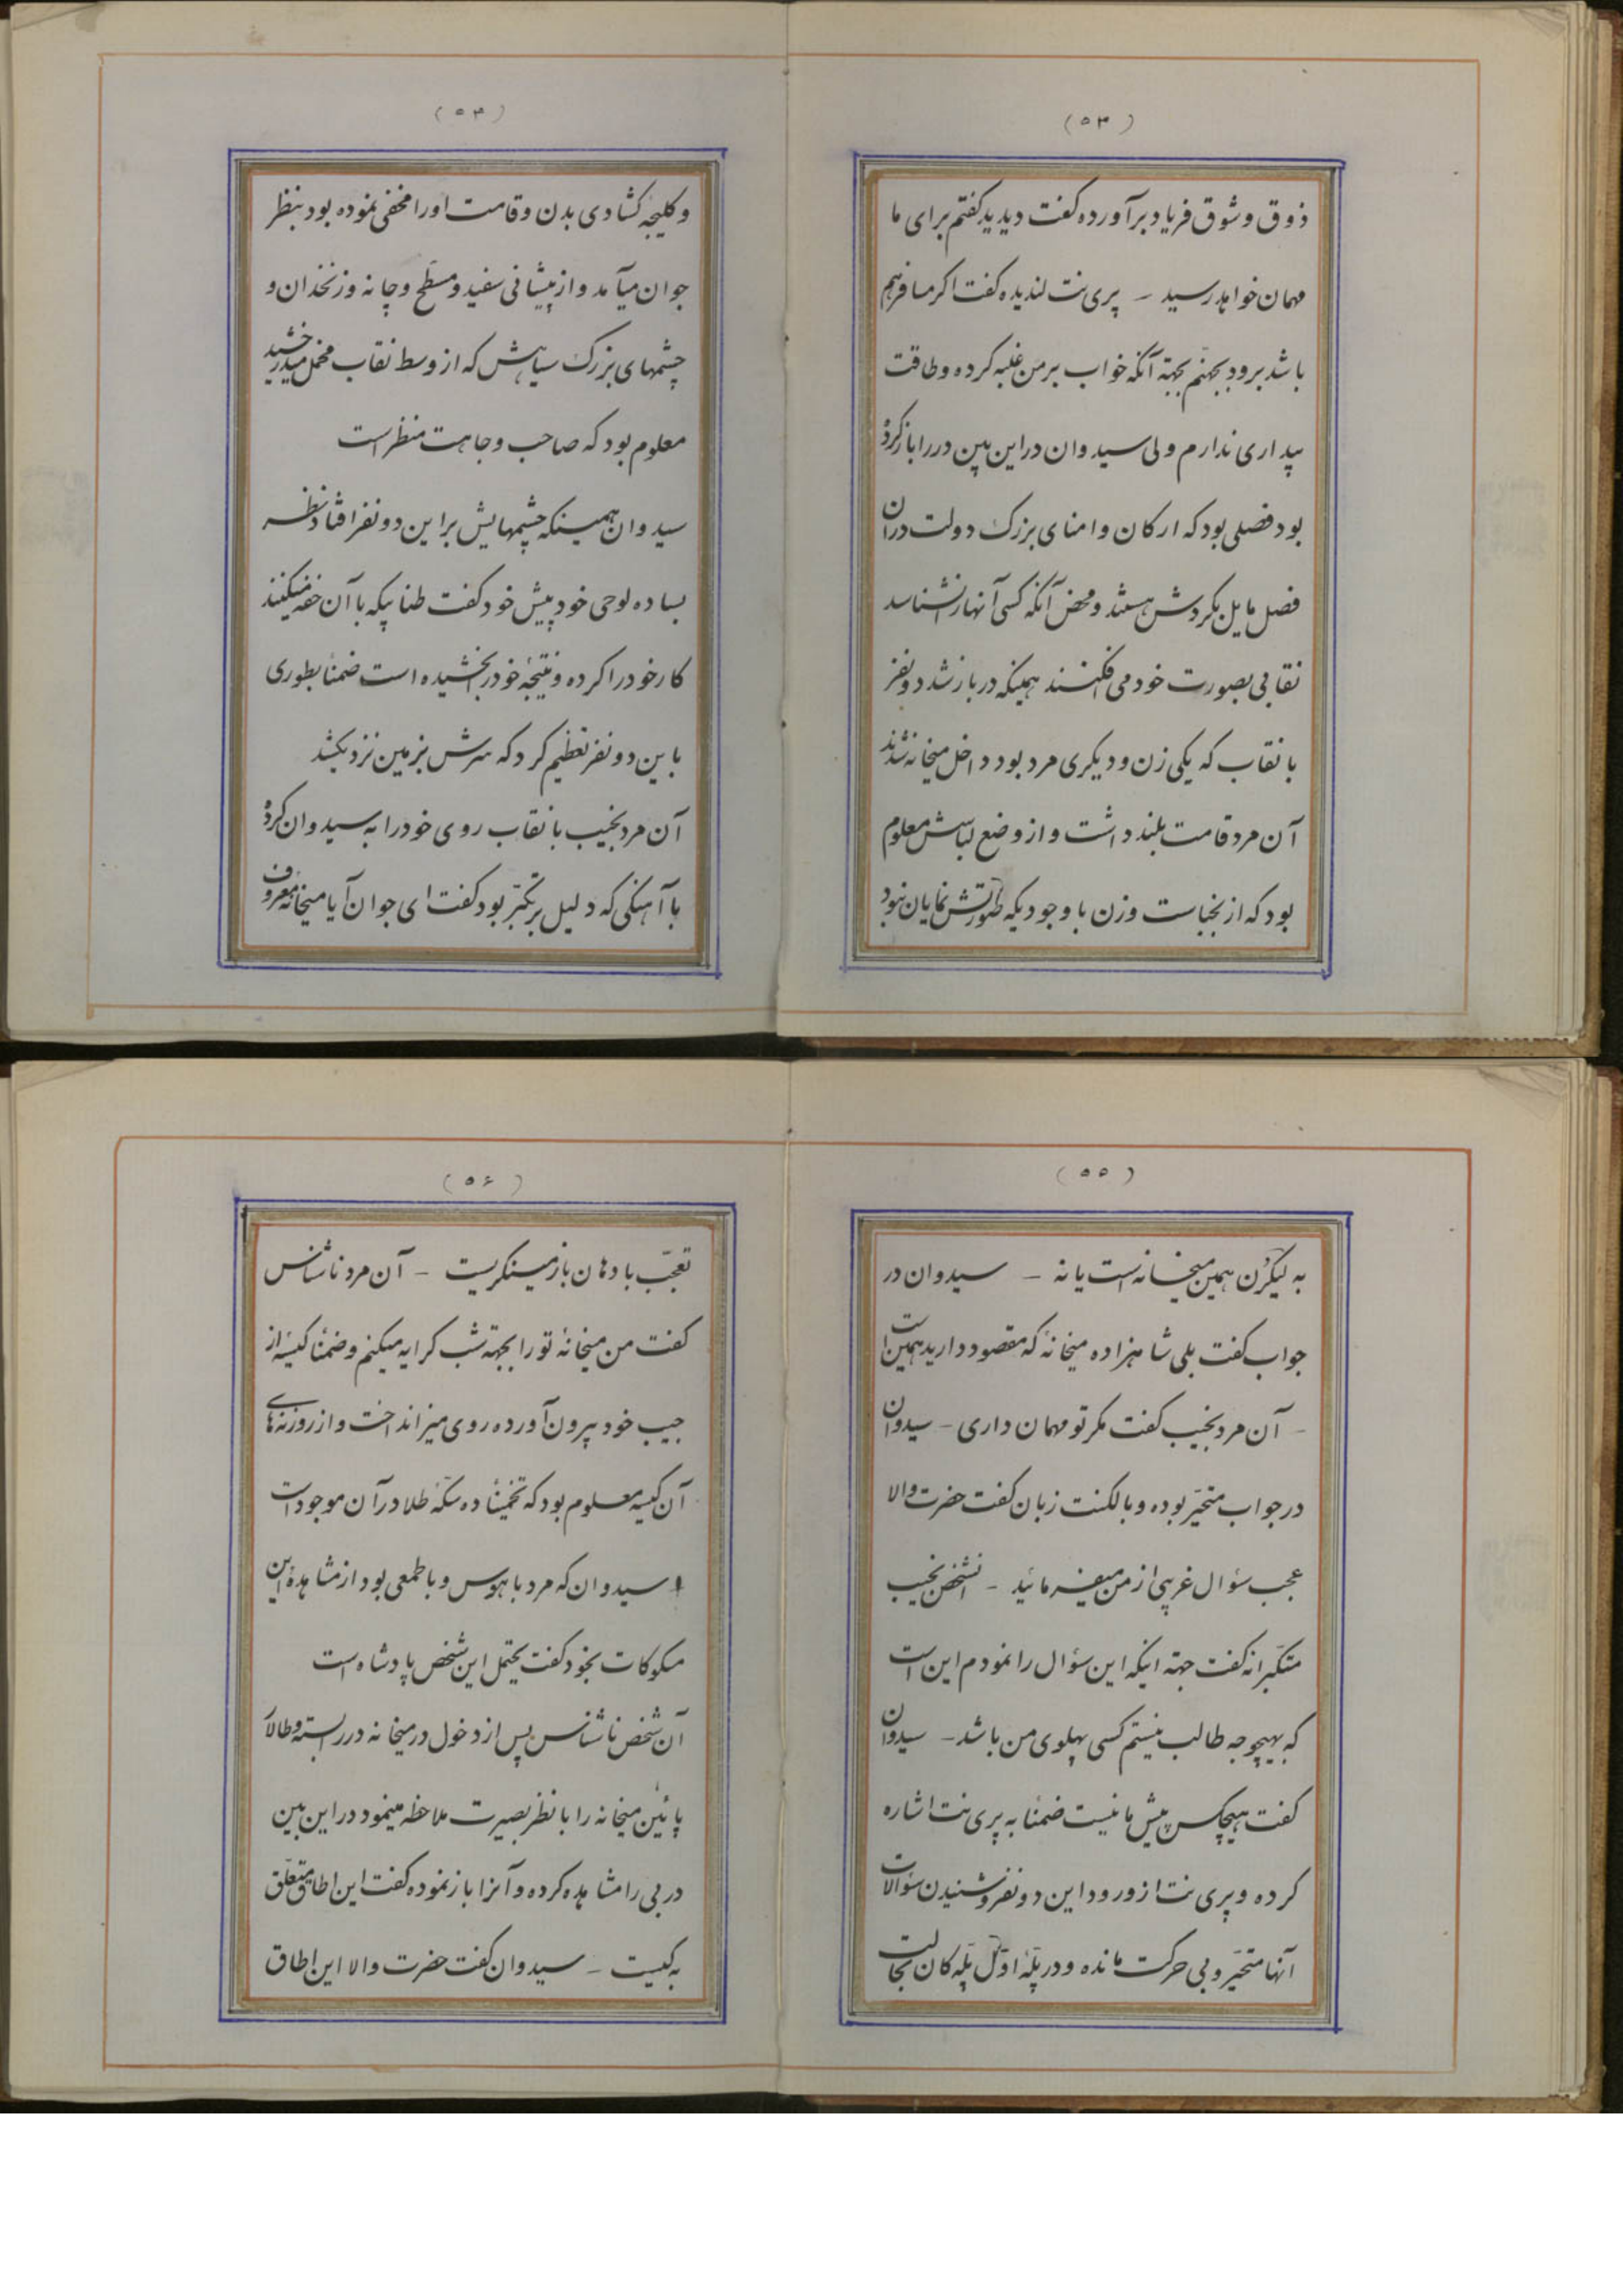 (۵۳)
ذوق و شوق فریاد برآورده گفت دیدید گفتم برای ما
مهمان خواهد رسید - پری نت لندیده گفت اگر مسافر هم
باشد برود بجهنم بجهة آنکه خواب بر من غلبه کرده و طاقت
بیداری ندارم ولی سیدوان در این بین در را باز کرده
بود فصلی بود که ارکان و امنای بزرگ دولت در آن
فصل مایل بگردش هستند و محض آنکه کسی آنها را نشناسد
نقابی بصورت خود می افکنند همینکه در باز شد دو نفر
با نقاب که یکی زن و دیگری مرد بود داخل میخانه شدند
آن مرد قامت بلند داشت و از وضع لباسش معلوم
بود که از نجباست و زن با وجودیکه صورتش نمایان نبود
(۵۴)
و کلیجه گشادی بدن و قامت او را مخفی نموده بود بنظر
جوان میآمد و از پیشانی سفید و مسطح و چانه و زنخدان و
چشمهای بزرگ سیاهش که از وسط نقاب مخمل میدرخشید
معلوم بود که صاحب وجاهت منظر است
سیدوان همینکه چشمهایش بر این دو نفر افتاد نظر
بساده لوحی خود پیش خود گفت طنابیکه با آن خفه میکنند
کار خود را کرده و نتیجۀ خود را بخشیده است ضمناً بطوری
باین دو نفر تعظیم کرد که سرش بزمین نزدیک شد
آن مرد نجیب با نقاب روی خود را به سیدوان کرده
با آهنگی که دلیل بر تکبّر بود گفت ای جوان آیا میخانه معروف
(۵۵)
به لیگرن همین میخانه است یا نه - سیدوان در
جواب گفت بلی شاهزاده میخانۀ که مقصود دارید همین است
- آن مرد نجیب گفت مگر تو مهمان داری - سیدوان
در جواب متحیّر بوده و با لکنت زبان گفت حضرت والا
عجب سؤال غریبی از من میفرمائید - آنشخص نجیب
متکبّرانه گفت جهة اینکه این سؤال را نمودم این است
که بهیچوجه طالب نیستم کسی پهلوی من باشد - سیدوان
گفت هیچکس پیش ما نیست ضمناً به پری نت اشاره
کرده و پری نت از ورود این دو نفر و شنیدن سؤالات
آنها متحیّر و بی حرکت مانده و در پلّۀ اوّل پلّه کان بحالت
(۵۶)
تعجّب با دهان باز مینگریست - آن مرد ناشناس
گفت من میخانۀ تو را بجهة شب کرایه میکنم و ضمناً کیسۀ از
جیب خود بیرون آورده روی میز انداخت و از روزنه های
آن کیسه معلوم بود که تخمیناً ده سکّۀ طلا در آن موجود است
سیدوان که مرد با هوس و با طمعی بود از مشاهدۀ این
مسکوکات بخود گفت یحتمل این شخص پادشاه است
آن شخص ناشناس پس از دخول در میخانه در را بسته و طالار
پائین میخانه را با نظر بصیرت ملاحظه مینمود در این بین
دربی را مشاهده کرده و آنرا باز نموده گفت این اطاق متعلّق
به کیست - سیدوان گفت حضرت والا این اطاق